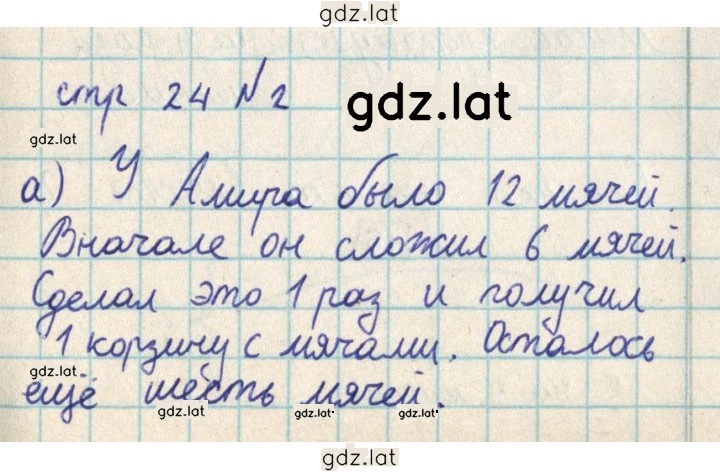 gdz.lat
стр 24 №2
gdz.lat
gdz.lat
а) У Амира было 12 мячей.
gdz.lat
Вначале он сложил 6 мячей.
Сделал это 1 раз и получил
1 корзину с мячами. Осталось
ещё шесть мячей.
gdz.lat gdz.lat gdz.lat
gdz.lat